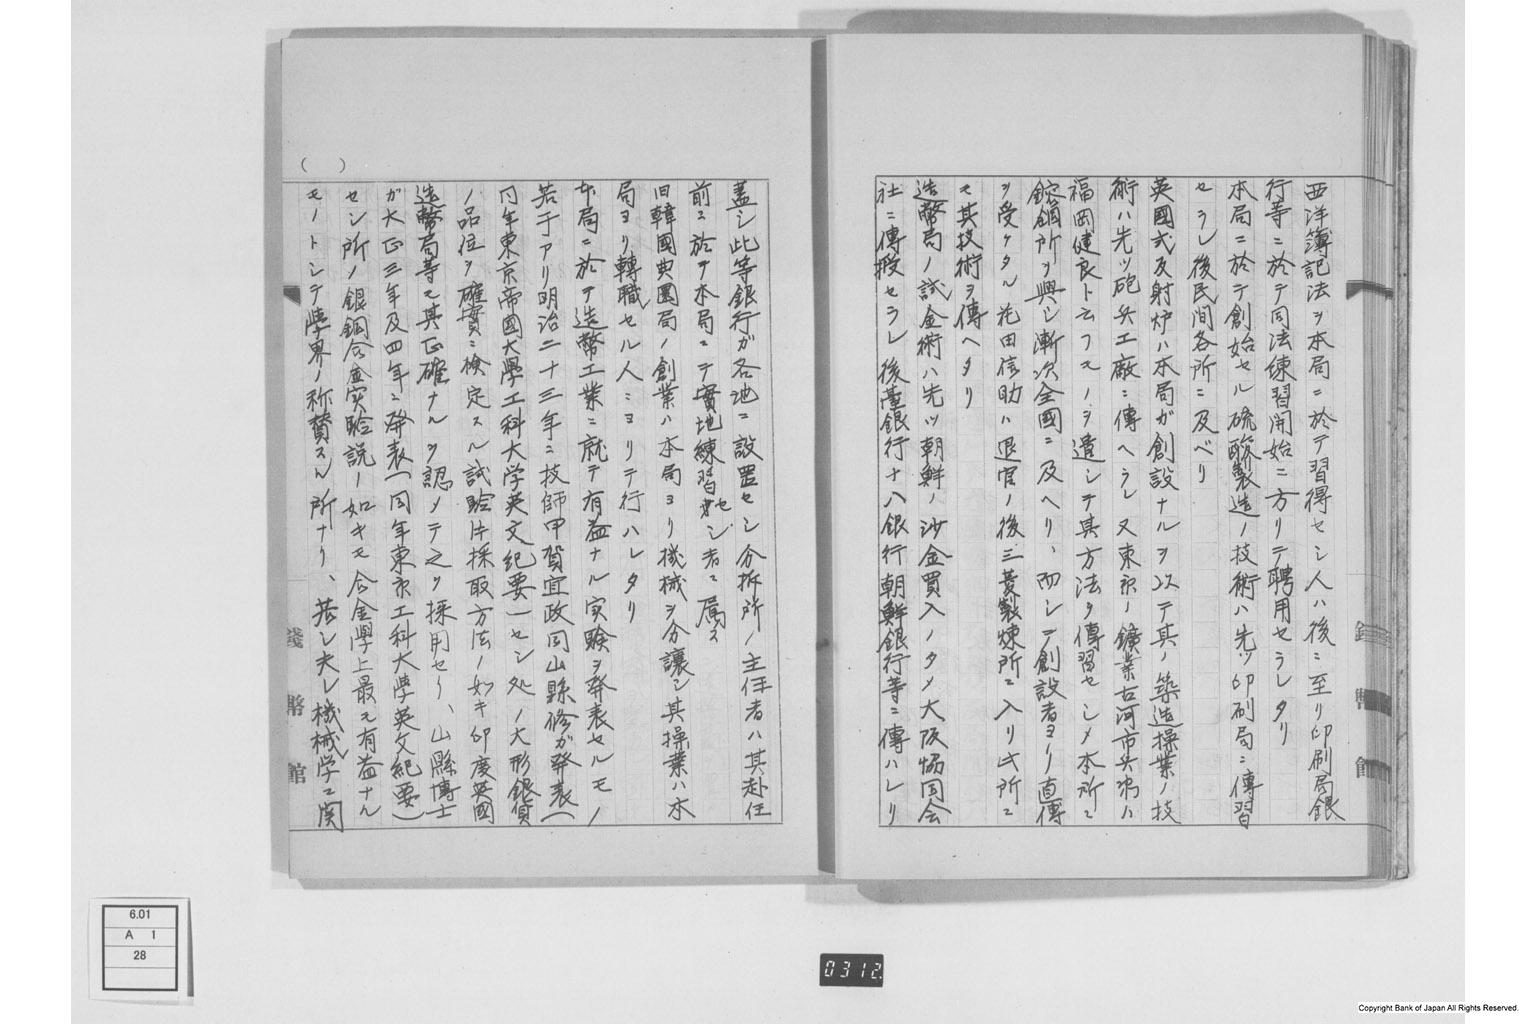 西洋簿記法ヲ本局ニ於テ習得セシ人ハ後ニ至リ印刷局銀
行等ニ於テ同法練習開始ニ方リテ聘用セラレタリ
本局ニ於テ創始セル硫酸製造ノ技術ハ先ツ印刷局ニ傳習
セラレ後民間各所ニ及ベリ
英國式反射炉ハ本局ガ創設ナルヲ以テ其ノ築造操業ノ技
術ハ先ツ砲兵工廠ニ傳ヘラレ又東京ノ鑛業古河市兵衛ハ
福岡健良ト云フモノヲ遣シテ其方法ヲ傳習セシメ本所ニ
錠銅所ヲ興シ漸次全國ニ及ヘリ、而シテ創設者ヨリ直傳
ヲ受ケタル花田信助ハ退官ノ後三菱製煉所ニ入リ此所ニ
モ其技術ヲ傳ヘタリ
造幣局ノ試金術ハ先ツ朝鮮ノ沙金買入ノタメ大阪協同会
社ニ傳搬セラレ後臺銀行十八銀行朝鮮銀行等ニ傳ハレリ
蓋シ此等銀行ガ各地ニ設置セシ分拆所ノ主任者ハ其赴任
前ニ於テ本局ニテ實地練習セシ者ニ属ス
旧韓國典圜局ノ創業ハ本局ヨリ機械ヲ分讓シ其操業ハ本
局ヨリ轉職セル人ニヨリテ行ハレタリ
本局ニ於テ造幣工業ニ就テ有益ナル実驗ヲ発表セルモノ
若干アリ明治二十三年ニ技師甲賀宜政同山縣修ガ発表(
同年東京帝國大學工科大学英文紀要)セシ処ノ大形銀貨
ノ品位ヲ確實ニ検定スル試験片採取方法ノ如キ印度英國
造幣局等モ其正確ナルヲ認メテ之ヲ採用セリ、山縣博士
ガ大正三年及四年ニ発表(同年東京工科大學英文紀要)
セシ所ノ銀銅合金実驗説ノ如キモ合金學上最モ有益ナル
モノトシテ學界ノ称賛スル所ナリ、若シ夫レ機械学ニ関
( )
錢幣館
6.01
A 1
28
0312
Copyright Bank of Japan All Rights Reserved.